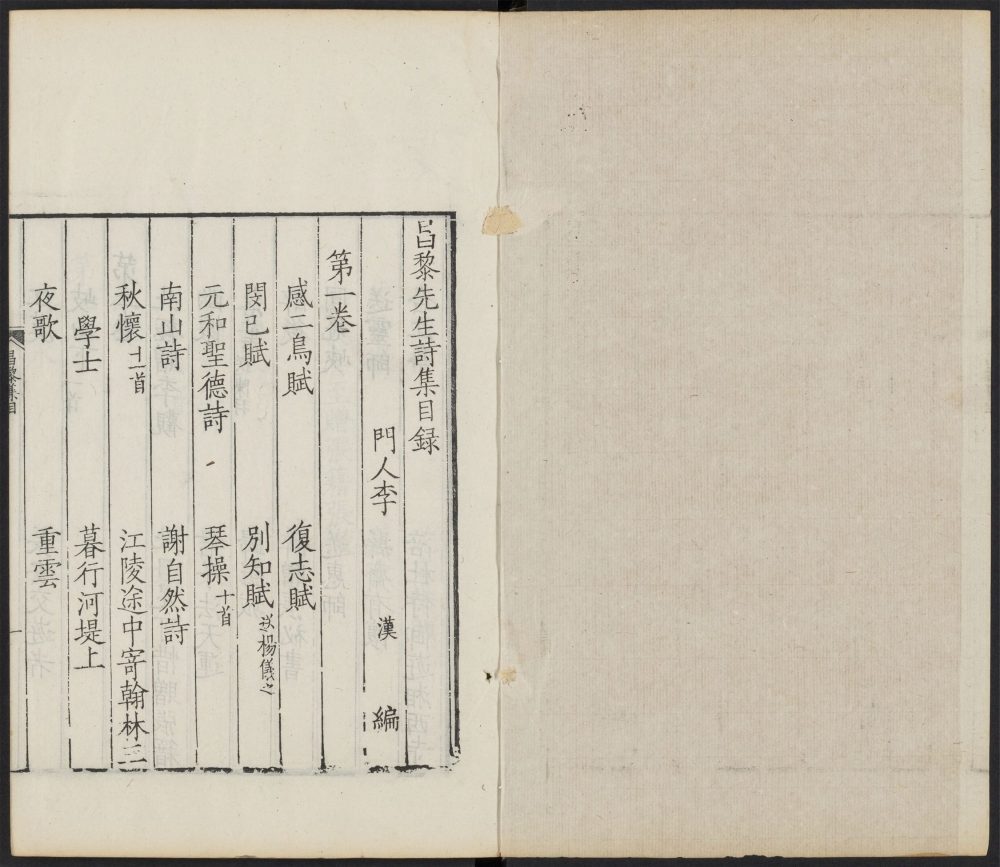 昌黎先生詩集目録
門人李 漢 編
第一卷
感二鳥賦 復志賦
閔己賦 別知賦送楊儀之
元和聖德詩 琴操十首
南山詩 謝自然詩
秋懷十一首 江陵途中寄翰林三
學士 暮行河堤上
夜歌 重雲
昌黎集目
一